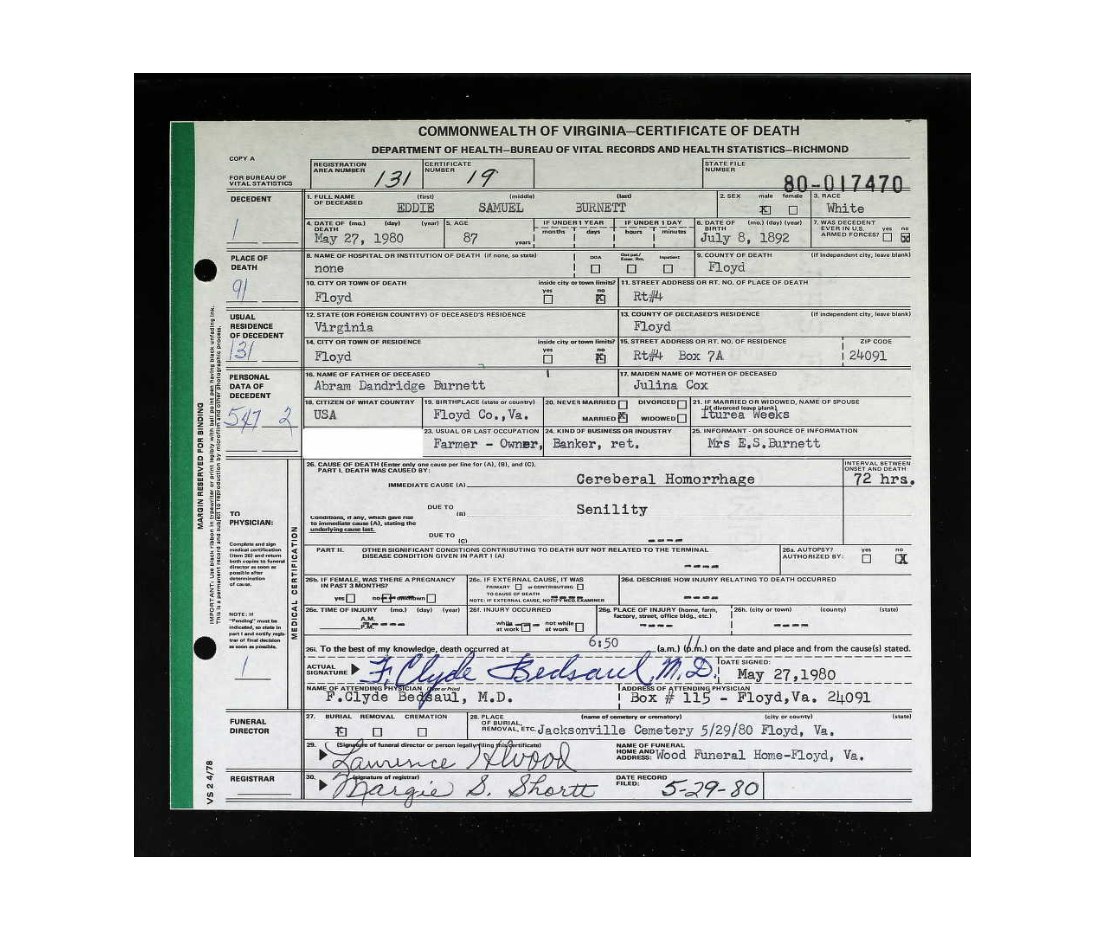 COMMONWEALTH OF VIRGINIA—CERTIFICATE OF DEATH
DEPARTMENT OF HEALTH—BUREAU OF VITAL RECORDS AND HEALTH STATISTICS—RICHMOND
COPY A
FOR BUREAU OF VITAL STATISTICS
REGISTRATION AREA NUMBER 131 CERTIFICATE NUMBER 19 STATE FILE NUMBER 80-017470
DECEDENT
1
1. FULL NAME OF DECEASED (first) (middle) (last) 2. SEX male female 3. RACE
EDDIE SAMUEL BURNETT X White
4. DATE OF DEATH (mo.) (day) (year) 5. AGE IF UNDER 1 YEAR IF UNDER 1 DAY 6. DATE OF BIRTH (mo.) (day) (year) 7. WAS DECEDENT EVER IN U.S. ARMED FORCES? yes no
months days hours minutes
May 27, 1980 87 years July 8, 1892 X
PLACE OF DEATH
91
8. NAME OF HOSPITAL OR INSTITUTION OF DEATH (if none, so state) DOA Inpatient 9. COUNTY OF DEATH (if independent city, leave blank)
none Floyd
10. CITY OR TOWN OF DEATH inside city or town limits? yes no 11. STREET ADDRESS OR RT. NO. OF PLACE OF DEATH
Floyd X Rt#4
USUAL RESIDENCE OF DECEDENT
131
12. STATE (OR FOREIGN COUNTRY) OF DECEASED'S RESIDENCE 13. COUNTY OF DECEASED'S RESIDENCE (if independent city, leave blank)
Virginia Floyd
14. CITY OR TOWN OF RESIDENCE inside city or town limits? yes no 15. STREET ADDRESS OR RT. NO. OF RESIDENCE ZIP CODE
Floyd X Rt#4 Box 7A 24091
PERSONAL DATA OF DECEDENT
547 2
16. NAME OF FATHER OF DECEASED 17. MAIDEN NAME OF MOTHER OF DECEASED
Abram Dandridge Burnett Julina Cox
18. CITIZEN OF WHAT COUNTRY 19. BIRTHPLACE (state or country) 20. NEVER MARRIED DIVORCED 21. IF MARRIED OR WIDOWED, NAME OF SPOUSE (if divorced leave blank)
USA Floyd Co.,Va. MARRIED X WIDOWED Iturea Weeks
23. USUAL OR LAST OCCUPATION 24. KIND OF BUSINESS OR INDUSTRY 25. INFORMANT - OR SOURCE OF INFORMATION
Farmer - Owner, Banker, ret. Mrs E.S.Burnett
MARGIN RESERVED FOR BINDING
VS 2 4/78
TO PHYSICIAN:
Complete and sign medical certification (item 26) and return both copies to funeral director as soon as possible after determination of cause.
NOTE: If "Pending" must be indicated, so state in part I and notify registrar of final decision as soon as possible.
1
MEDICAL CERTIFICATION
26. CAUSE OF DEATH (Enter only one cause per line for (A), (B), and (C).
PART I. DEATH WAS CAUSED BY: INTERVAL BETWEEN ONSET AND DEATH
IMMEDIATE CAUSE (A) Cereberal Homorrhage 72 hrs.
DUE TO (B) Senility
Conditions, if any, which gave rise to immediate cause (A), stating the underlying cause last.
DUE TO (C) ----
PART II. OTHER SIGNIFICANT CONDITIONS CONTRIBUTING TO DEATH BUT NOT RELATED TO THE TERMINAL DISEASE CONDITION GIVEN IN PART I (A) ---- 26a. AUTOPSY? AUTHORIZED BY: yes no X
26b. IF FEMALE, WAS THERE A PREGNANCY IN PAST 3 MONTHS? 26c. IF EXTERNAL CAUSE, IT WAS 26d. DESCRIBE HOW INJURY RELATING TO DEATH OCCURRED
PRIMARY or CONTRIBUTING TO CAUSE OF DEATH
yes no unknown ---- NOTE: IF EXTERNAL CAUSE, NOTIFY MED. EXAMINER ----
26e. TIME OF INJURY (mo.) (day) (year) 26f. INJURY OCCURRED 26g. PLACE OF INJURY (home, farm, factory, street, office bldg., etc.) 26h. (city or town) (county) (state)
A.M. P.M. ---- while at work --- not while at work ---- ----
26i. To the best of my knowledge, death occurred at 6:50 (a.m.) (p.m.) on the date and place and from the cause(s) stated.
ACTUAL SIGNATURE F. Clyde Bedsaul, M.D. DATE SIGNED: May 27,1980
NAME OF ATTENDING PHYSICIAN (Type or Print) ADDRESS OF ATTENDING PHYSICIAN
F.Clyde Bedsaul, M.D. Box # 115 - Floyd,Va. 24091
FUNERAL DIRECTOR
27. BURIAL REMOVAL CREMATION 28. PLACE OF BURIAL, REMOVAL, ETC. (name of cemetery or crematory) (city or county) (state)
X Jacksonville Cemetery 5/29/80 Floyd, Va.
29. (Signature of funeral director or person legally filing this certificate) NAME OF FUNERAL HOME AND ADDRESS:
Laurence A Wood Wood Funeral Home-Floyd, Va.
REGISTRAR
30. (signature of registrar) DATE RECORD FILED:
Margie S. Shortt 5-29-80